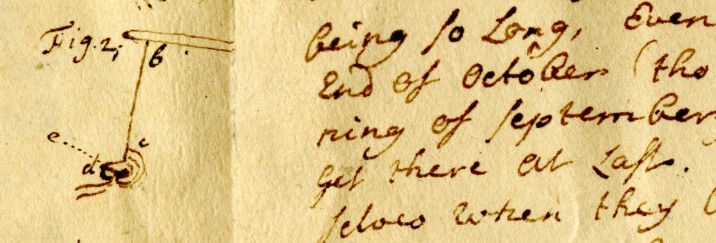 Fig. 2;
b
c
e
d
being so Long, Even
End of October (tho
ning of september
get there at Last.
selves when they